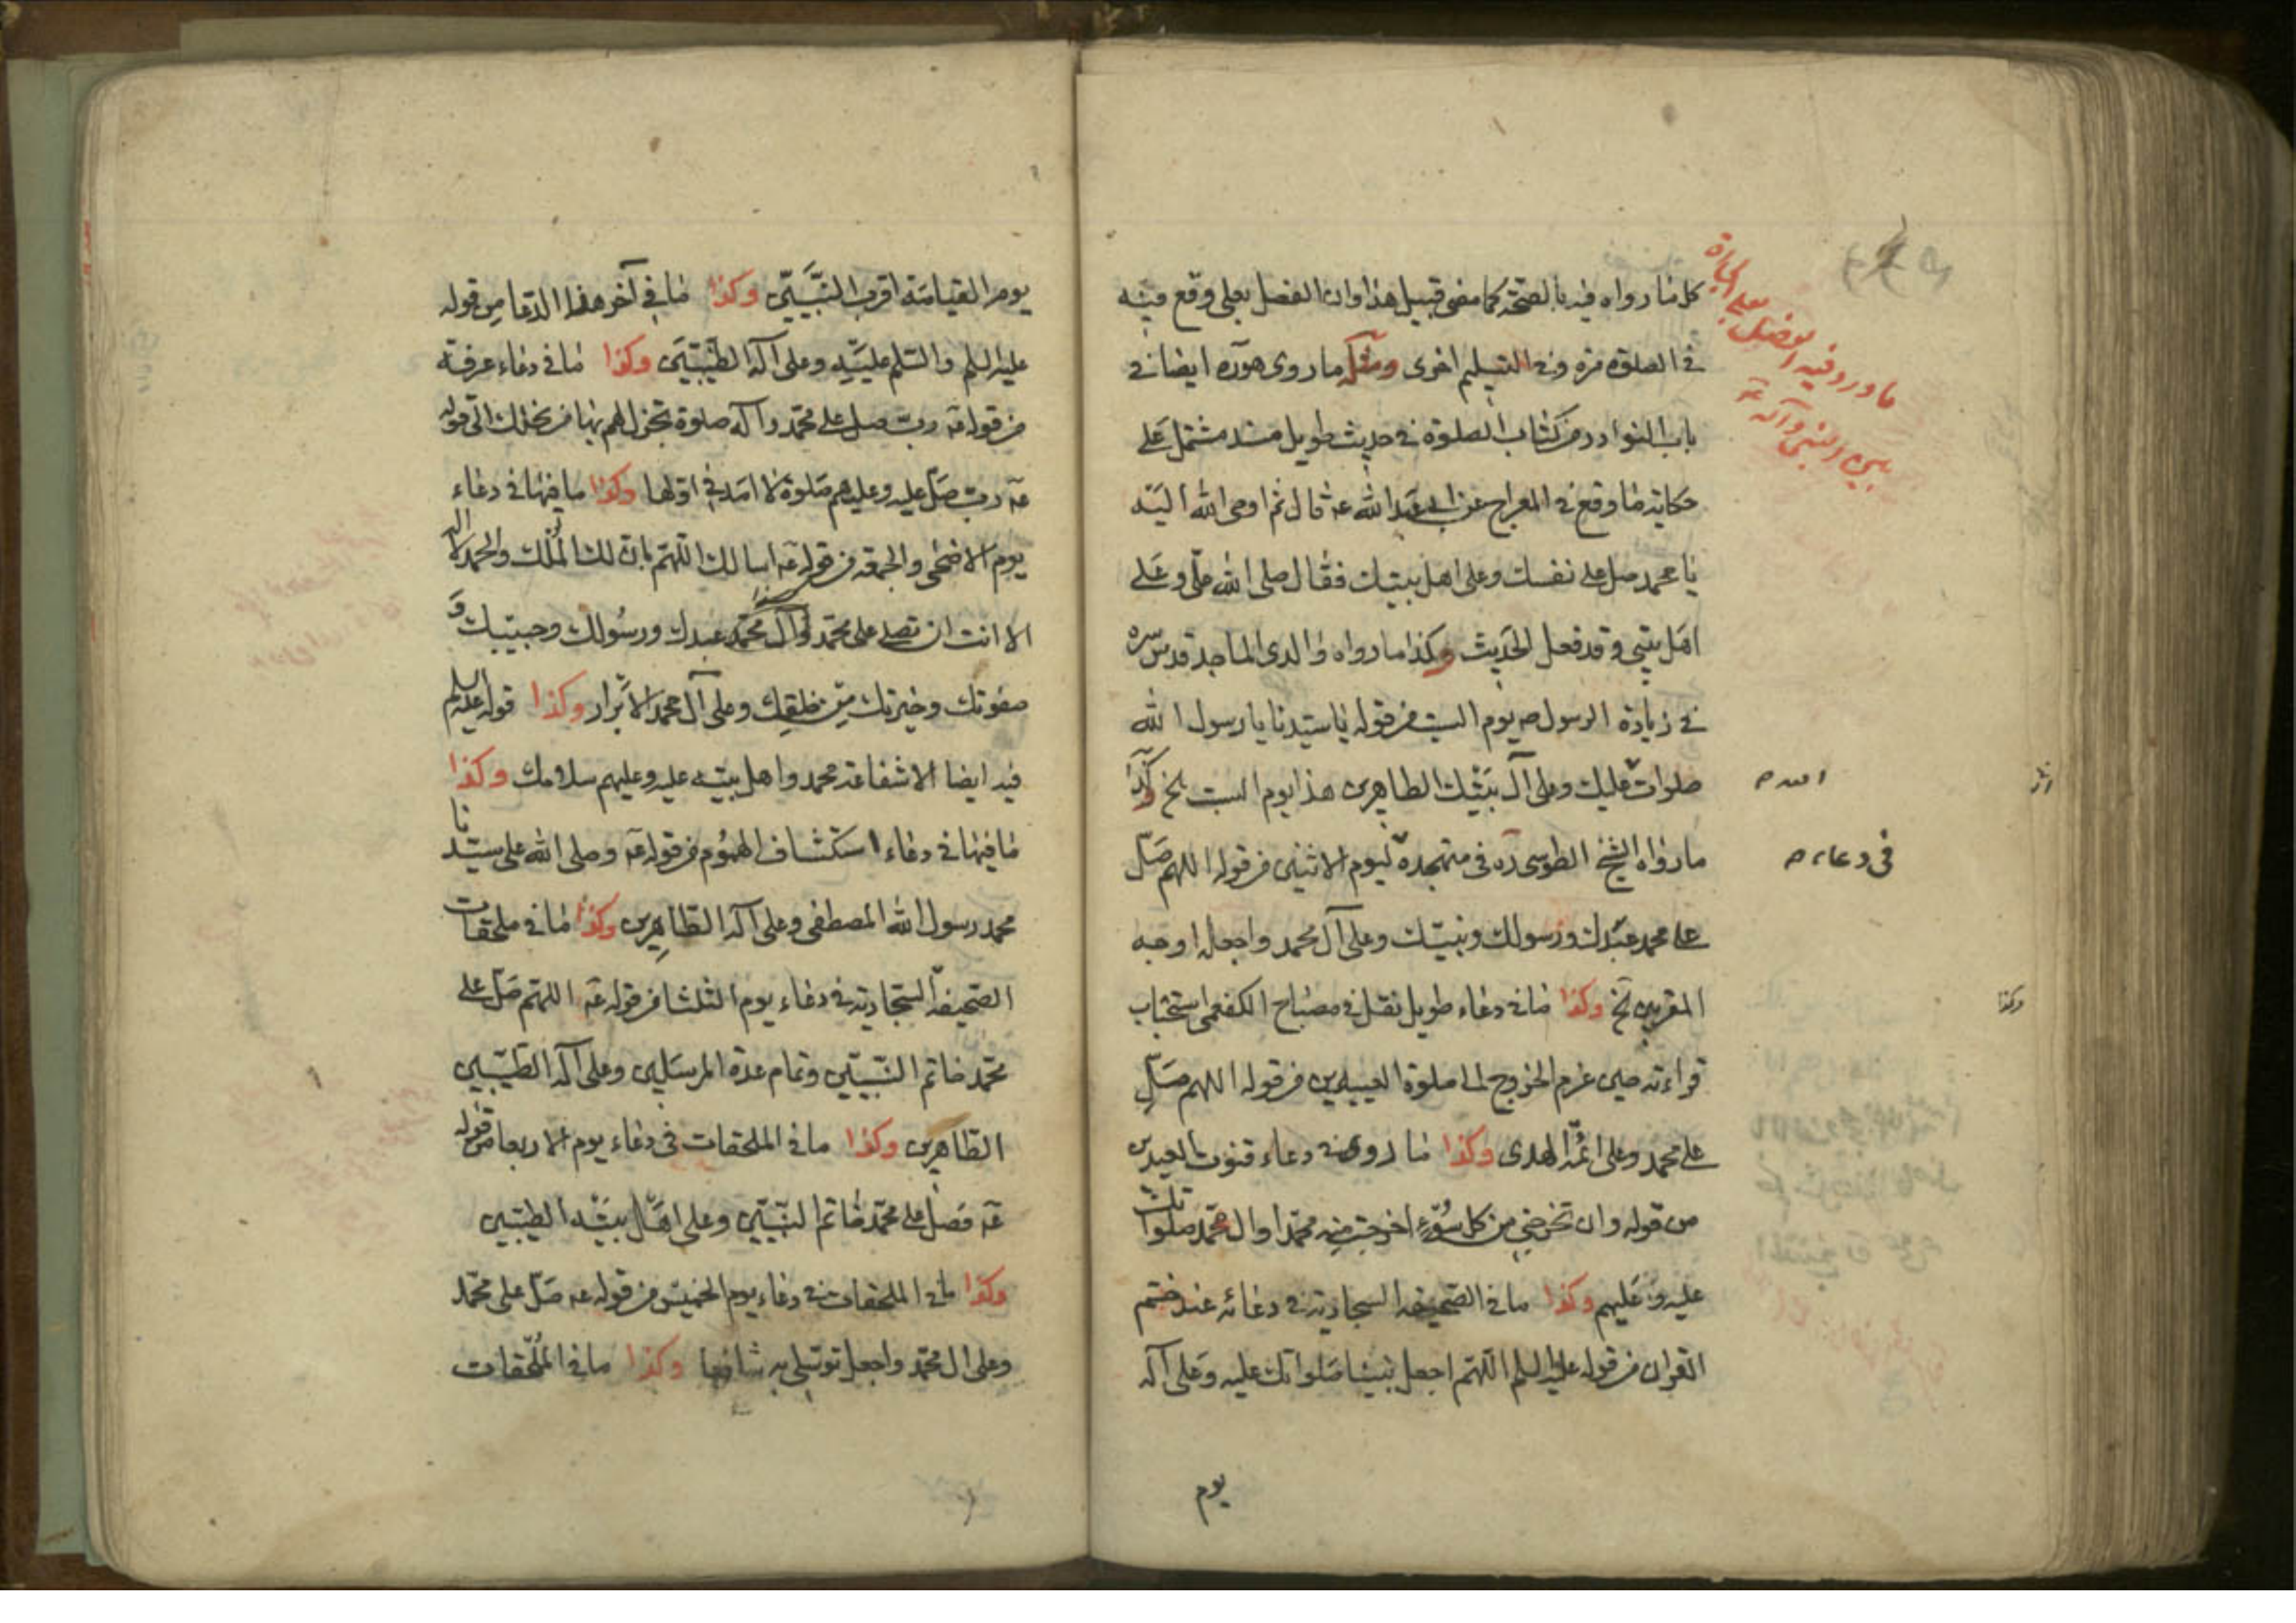 كل ما رواه فيه بالصحة كما مضى قبيل هذا وان الفصل بعلى وقع فيه
في الصلوة مرة وفي التسليم اخرى ومثله ما روى هو ره ايضا في
باب النوادر من كتاب الصلوة في حديث طويل مسند مشتمل على
حكاية ما وقع في المعراج عن ابي عبد الله عه قال ثم اوحى الله اليه
يا محمد صل على نفسك وعلى اهل بيتك فقال صلى الله علي وعلى
اهل بيتي وقد فعل الحديث وكذا ما رواه والدي الماجد قدس سره
في زيارة الرسول ص يوم السبت من قوله يا سيدنا يا رسول الله
صلوات عليك وعلى آل بيتك الطاهرين هذا يوم السبت الخ وكذا
الله ص
ما رواه الشيخ الطوسي ره في متهجده ليوم الاثنين من قوله اللهم صل
في دعاء ص
على محمد عبدك ورسولك ونبيك وعلى آل محمد واجعله اوجه
المقربين الخ وكذا ما في دعاء طويل نقل في مصباح الكفعمي استحباب
وكذا
قراءته حين عزم الخروج الى صلوة العيدين من قوله اللهم صل
على محمد وعلى ائمة الهدى وكذا ما روى في دعاء قنوت العيدين
من قوله وان تخرجني من كل سوء اخرجت منه محمدا وال محمد صلواتك
عليه وعليهم وكذا ما في الصحيفة السجادية في دعائه عند ختم
القران من قوله عليه السلم اللهم اجعل نبينا صلواتك عليه وعلى آله
يوم
ما ورد فيه الفصل بعلى الجارة
بين النبي وآله عه
يوم القيامة اقرب النبيين وكذا ما في آخر هذا الدعا من قوله
عليه السلم والسلم عليه وعلى آله الطيبين وكذا ما في دعاء عرفة
من قوله عه رب صل على محمد وآله صلوة تجزل لهم بها من نحلك الى قوله
عه رب صل عليه وعليهم صلوة لا امد في اولها وكذا ما فيها في دعاء
يوم الاضحى والجمعة من قوله عه اسالك اللهم بان لك الملك والحمد لا اله
الا انت ان تصلي على محمد وآل محمد عبدك ورسولك وحبيبك و
صفوتك وخيرتك من خلقك وعلى آل محمد الابرار وكذا قوله عليه السلم
فيه ايضا الا شفاعة محمد واهل بيته عليه وعليهم سلامك وكذا
ما فيها في دعاء استكشاف الهموم من قوله عه وصلى الله على سيدنا
محمد رسول الله المصطفى وعلى آله الطاهرين وكذا ما في ملحقات
الصحيفة السجادية في دعاء يوم الثلثا من قوله عه اللهم صل على
محمد خاتم النبيين وتمام عدة المرسلين وعلى آله الطيبين
الطاهرين وكذا ما في الملحقات في دعاء يوم الاربعا من قوله
عه فصل على محمد خاتم النبيين وعلى اهل بيته الطيبين
وكذا ما في الملحقات في دعاء يوم الخميس من قوله عه صل على محمد
وعلى ال محمد واجعل توسلي به شافعا وكذا ما في الملحقات